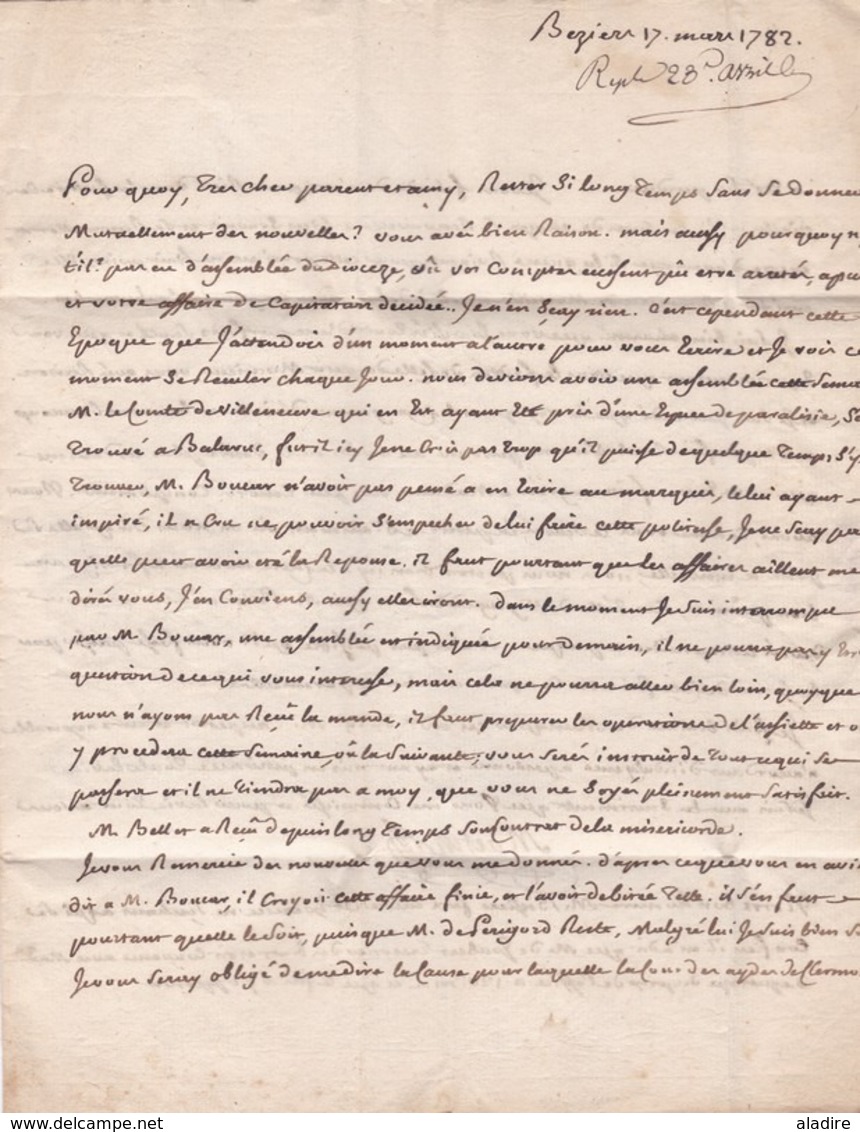 Beziers 17. mars 1782.
Rept le 23e. Avril
Pourquoy, tres cher parent et amy, Rester Si longtemps Sans Se donner
Mutuellement des nouvelles? vous avés bien Raison. mais aussy pourquoy n'y
t'il pas eu d'assemblée du Dioceze, où vos Comptes eussent pû etre arretés,
et votre affaire de Capitation decidée.. Je n'en Sçay rien. C'est cependant cette
Epoque que J'attendois d'un moment a l'autre pour vous Ecrire et Je vois ce
moment Se Reculer chaque Jour. nous devions avoir une assemblée cette Sema
M. le Comte de Villeneuve qui en Est ayant Eté pris d'une Espece de paralisie, S'e
trouvé a Balaruc, fut il icy Je ne Crois pas trop qu'il puisse de quelque temps S'y
trouver, M. Boucar n'avoit pas pensé a en Ecrire au marquis, le lui ayant
inspiré, il a Cru ne pouvoir S'empecher de lui faire cette politesse, Je ne Scay pas
quelle peut avoir eté la Reponse. il faut pourtant que les affaires aillent me
dirés vous, J'en Conviens, aussy elles iront. dans le moment Je Suis interrompu
par M. Boucar, une assemblée est indiquée pour demain, il ne pourra pas y Etre
question de ce qui vous interesse, mais cela ne pourra aller bien loin, quoyque
nous n'ayons pas Reçu la mande, il faut preparer les operations de l'assiette et o
y procedera cette Semaine, où la Suivante, vous Serés instruit de tout ce qui Se
passera et il ne tiendra pas a moy, que vous ne Soyés pleinement Satisfait.
M. Bellet a Reçu depuis longtemps Son Contrat de la misericorde.
Je vous Remercie des nouvelles que vous me donnés. d'apres ce que vous en avié
dit a M. Boucar, il Croyoit cette affaire finie, et l'avoit debitée telle. il S'en faut
pourtant quelle le Soit, puisque M. de Perigord Reste, Malgré lui Je Suis bien S
Je vous Seray obligé de me dire la Cause pour laquelle la Cour des aydes de Clermo
www.delcampe.net
aladire